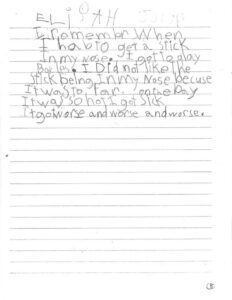 ELIJAH
I Remember When
I hab to get a stick
In my nose. I got to play
I Did not like the
stick being In my Nose becuse
It was to far. one the Day
It was so hot I got sick
It got worse and worse and worse.